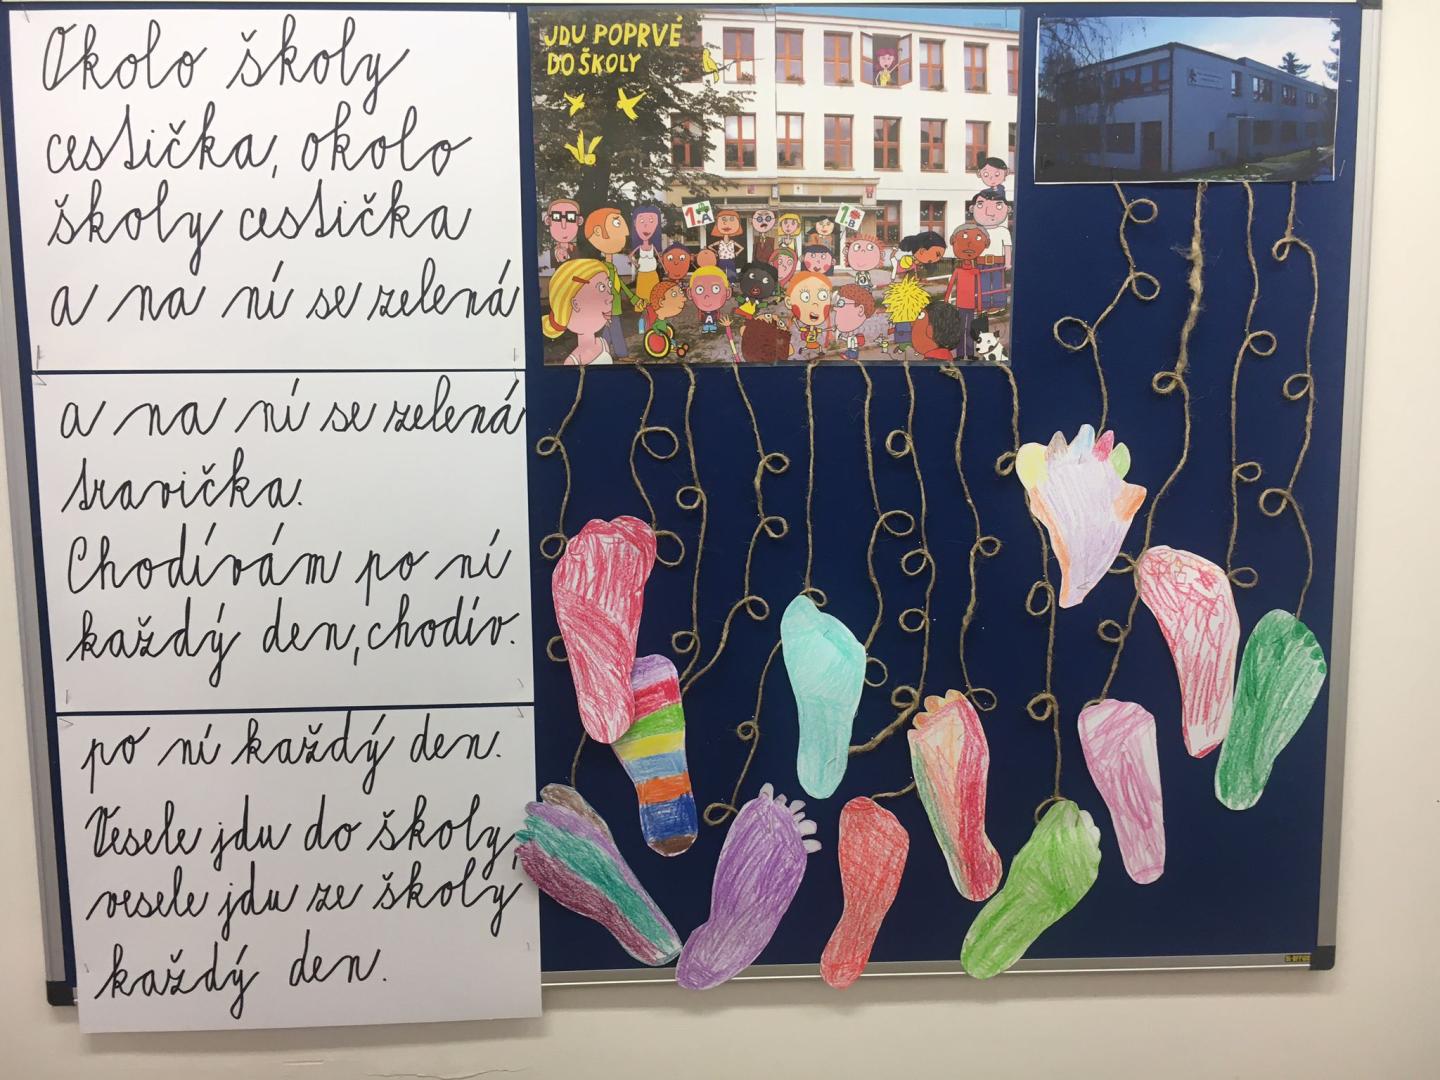 Okolo školy
cestička, okolo
školy cestička
a na ní se zelená
a na ní se zelená
travička.
Chodívám po ní
každý den, chodív.
po ní každý den.
Vesele jdu do školy,
vesele jdu ze školy
každý den.
JDU POPRVÉ
DO ŠKOLY
1.A
1.B
A